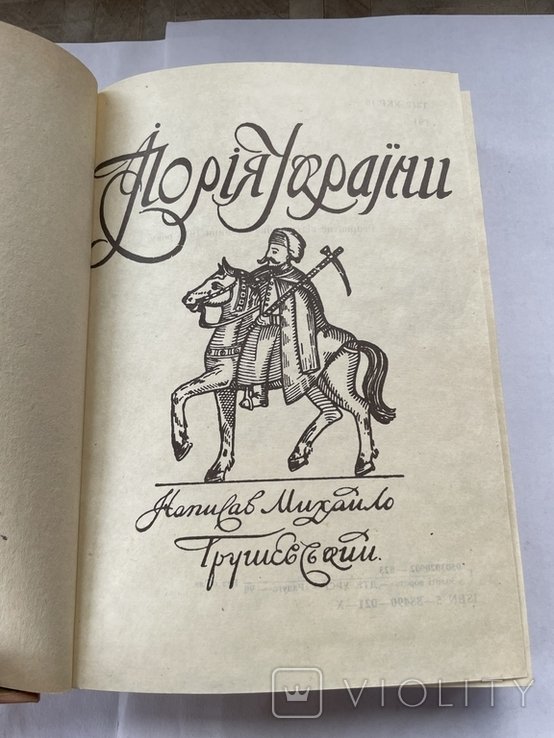 Історія України
Написав Михайло
Грушевський.
VIOLITY